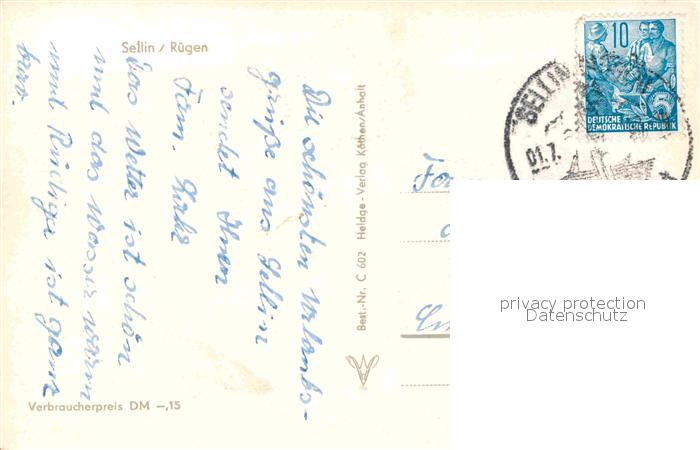 Sellin / Rügen
Die schönsten Urlaubs-
grüße aus Sellin
sendet Ihnen
Fam.
Das Wetter ist schön
und das Wasser warm
und Rüdiger ist ganz
Verbraucherpreis DM —,15
Best.-Nr. C 602 Heldge - Verlag Köthen/Anhalt
10
5
DEUTSCHE
DEMOKRATISCHE REPUBLIK
SELLIN
01.7.
privacy protection
Datenschutz